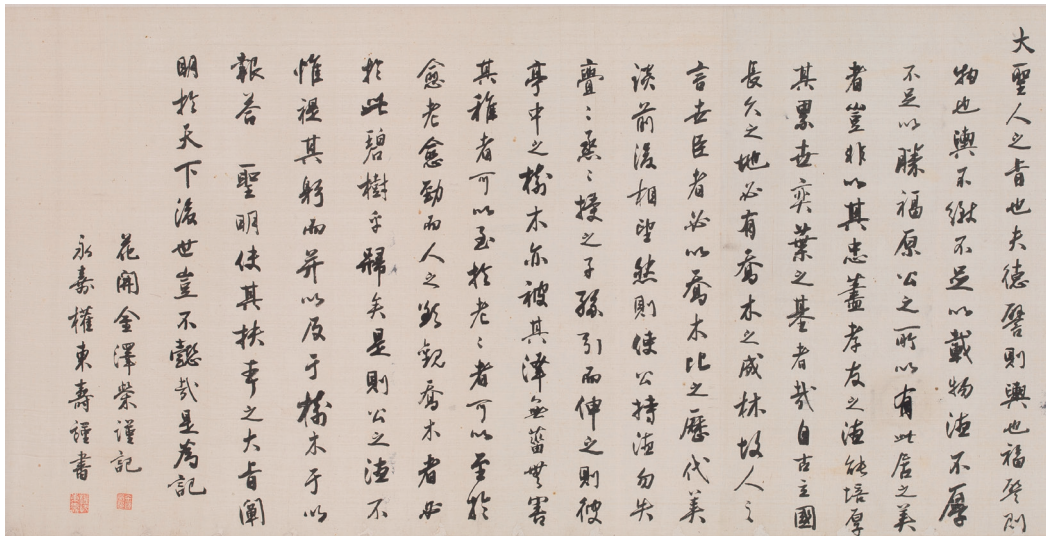 大
聖人之旨也夫德譬則輿也福譬則
物也輿不緻不足以載物德不厚
不足以勝福原公之所以有此居之美
者豈非以其忠藎孝友之德能培厚
其累世奕葉之基者哉自古主國
長久之地必有喬木之成林故人之
言世臣者必以喬木比之歷代美
談前後相望然則使公持德勿失
亹〻烝〻授之子孫引而伸之則彼
亭中之樹木亦被其澤無菑無害
其稚者可以至於老〻者可以至於
愈老愈勁而人之欲觀喬木者必
於此碧樹乎歸矣是則公之德不
惟禔其躬而并以及于樹木于以
報答 聖明使其扶之大旨闡
明於天下後世豈不懿哉是爲記
花開金澤榮謹記
永嘉權東壽謹書